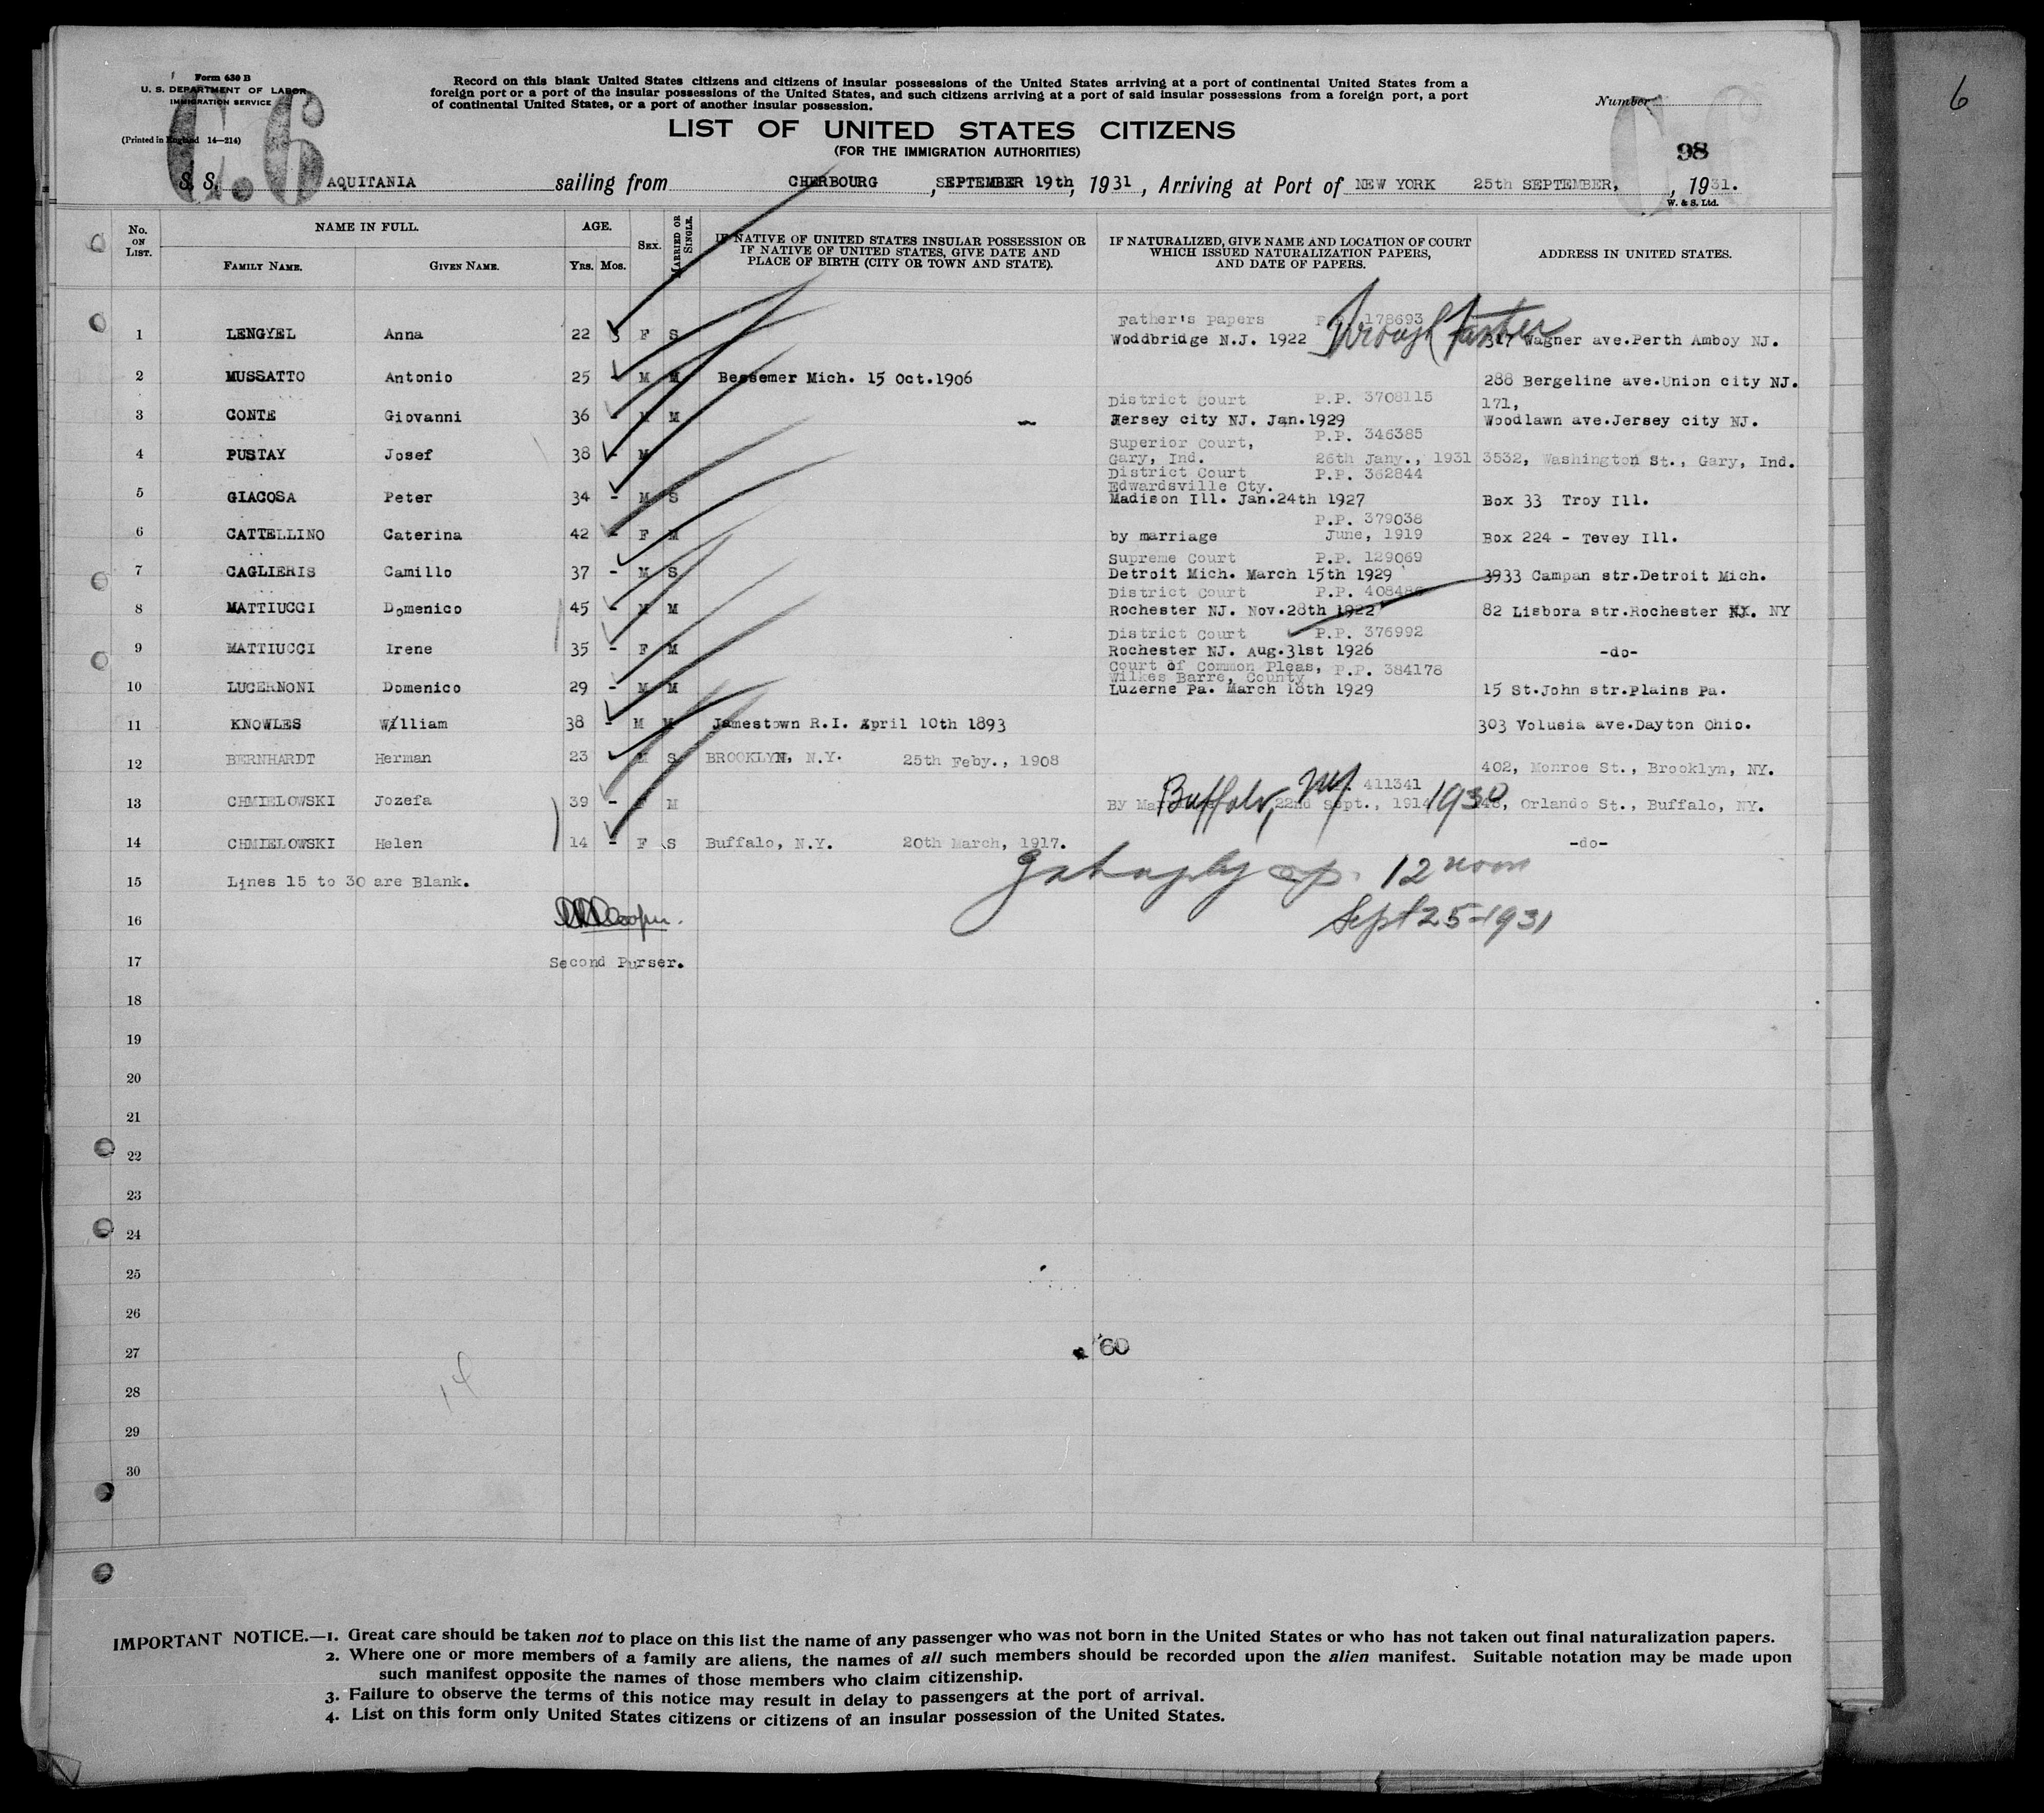 Form 630 B
U. S. DEPARTMENT OF LABOR
IMMIGRATION SERVICE
(Printed in England 14—214)
C.6
Record on this blank United States citizens and citizens of insular possessions of the United States arriving at a port of continental United States from a
foreign port or a port of the insular possessions of the United States, and such citizens arriving at a port of said insular possessions from a foreign port, a port
of continental United States, or a port of another insular possession.
Number
C.6
6
LIST OF UNITED STATES CITIZENS
(FOR THE IMMIGRATION AUTHORITIES)
98
S. S. AQUITANIA sailing from CHERBOURG, SEPTEMBER 19th, 1931, Arriving at Port of NEW YORK 25th SEPTEMBER, , 1931.
W. & S. Ltd.
No. ON LIST. NAME IN FULL. AGE. SEX. MARRIED OR SINGLE. IF NATIVE OF UNITED STATES INSULAR POSSESSION OR IF NATIVE OF UNITED STATES, GIVE DATE AND PLACE OF BIRTH (CITY OR TOWN AND STATE). IF NATURALIZED, GIVE NAME AND LOCATION OF COURT WHICH ISSUED NATURALIZATION PAPERS, AND DATE OF PAPERS. ADDRESS IN UNITED STATES.
FAMILY NAME. GIVEN NAME. YRS. MOS.
Father's papers 178693 Through
1 LENGYEL Anna 22 F S Woddbridge N.J. 1922 317 Wagner ave.Perth Amboy NJ.
2 MUSSATTO Antonio 25 - M M Bessemer Mich. 15 Oct.1906 288 Bergeline ave.Union city NJ.
District Court P.P. 3708115 171,
3 CONTE Giovanni 36 - M M Jersey city NJ. Jan.1929 Woodlawn ave.Jersey city NJ.
Superior Court, P.P. 346385
4 PUSTAY Josef 38 - M Gary, Ind. 26th Jany., 1931 3532, Washington St., Gary, Ind.
District Court P.P. 362844
Edwardsville Cty.
5 GIACOSA Peter 34 - M S Madison Ill. Jan.24th 1927 Box 33 Troy Ill.
P.P. 379038
6 CATTELLINO Caterina 42 - F M by marriage June, 1919 Box 224 - Tevey Ill.
Supreme Court P.P. 129069
7 CAGLIERIS Camillo 37 - M S Detroit Mich. March 15th 1929 3933 Campan str.Detroit Mich.
District Court P.P. 408486
8 MATTIUCCI Domenico 45 - M M Rochester NJ. Nov.28th 1922 82 Lisbora str.Rochester NY
District Court P.P. 376992
9 MATTIUCCI Irene 35 - F M Rochester NJ. Aug.31st 1926 -do-
Court of Common Pleas, P.P. 384178
Wilkes Barre, County
10 LUCERNONI Domenico 29 - M M Luzerne Pa. March 18th 1929 15 St.John str.Plains Pa.
11 KNOWLES William 38 - M M Jamestown R.I. April 10th 1893 303 Volusia ave.Dayton Ohio.
12 BERNHARDT Herman 23 M S BROOKLYN, N.Y. 25th Feby., 1908 402, Monroe St., Brooklyn, NY.
411341
13 CHMIELOWSKI Jozefa 39 - F M By Buffalo, 22nd Sept., 1914 1930 Orlando St., Buffalo, NY.
14 CHMIELOWSKI Helen 14 - F S Buffalo, N.Y. 20th March, 1917. -do-
12 noon
15 Lines 15 to 30 are Blank.
Sept 25-1931
16
17 Second Purser.
18
19
20
21
22
23
24
25
26
27 60
28 14
29
30
IMPORTANT NOTICE.—1. Great care should be taken not to place on this list the name of any passenger who was not born in the United States or who has not taken out final naturalization papers.
2. Where one or more members of a family are aliens, the names of all such members should be recorded upon the alien manifest. Suitable notation may be made upon
such manifest opposite the names of those members who claim citizenship.
3. Failure to observe the terms of this notice may result in delay to passengers at the port of arrival.
4. List on this form only United States citizens or citizens of an insular possession of the United States.